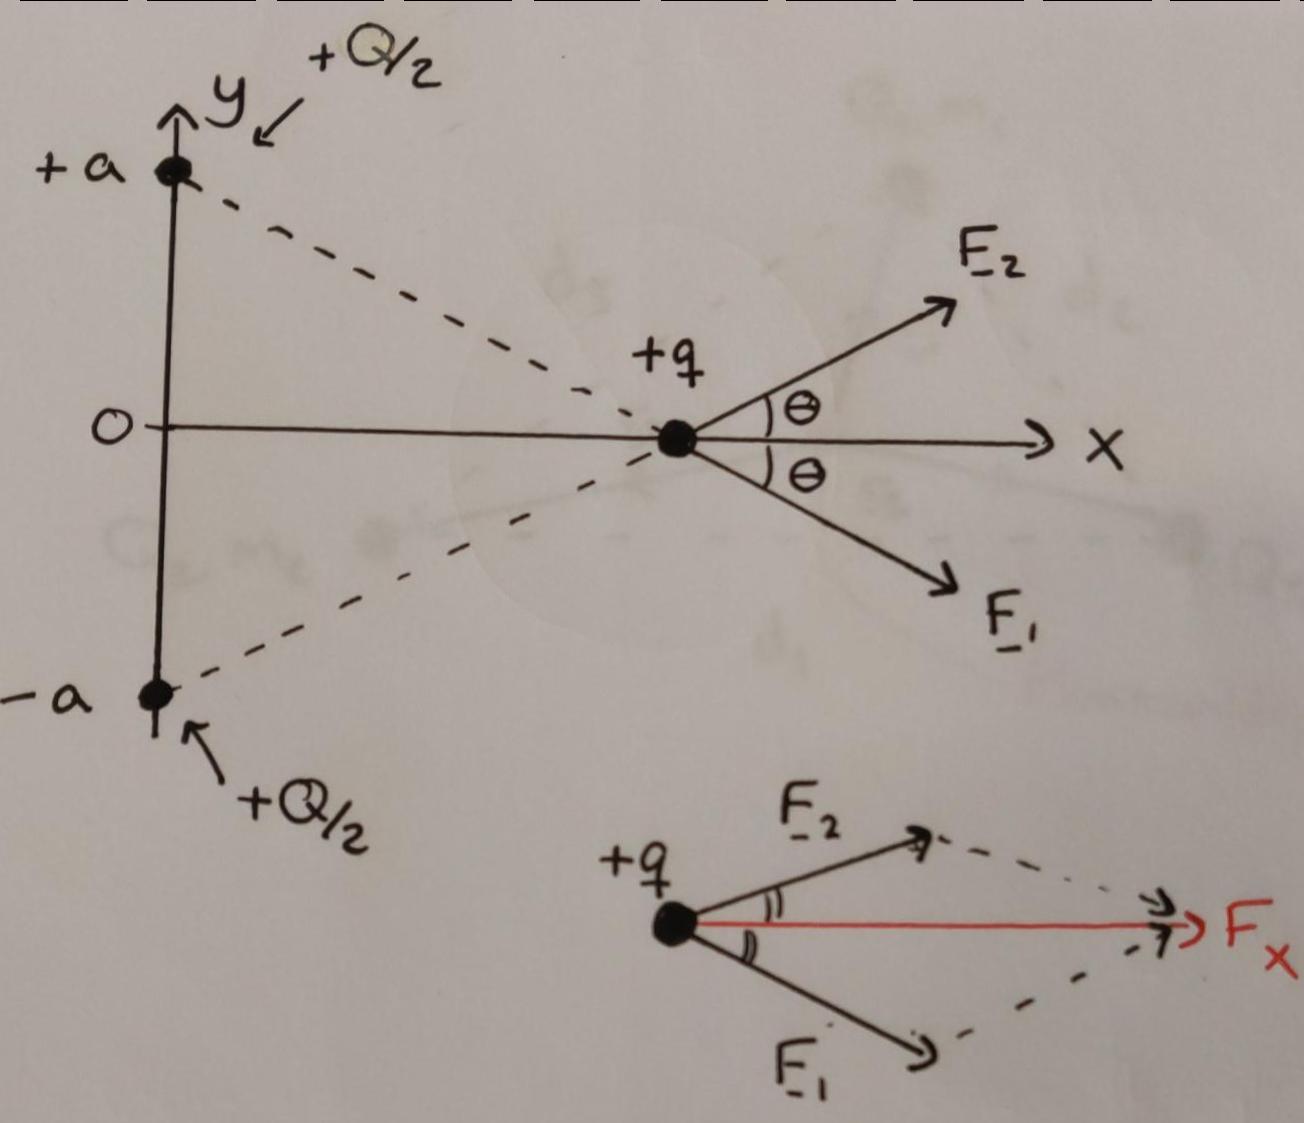 +Q/2
y
+a
F2
+q
θ
O
x
θ
F1
-a
+Q/2
F2
+q
Fx
F1